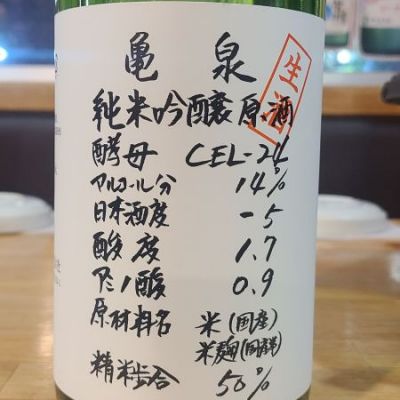 亀泉
生酒
純米吟醸原酒
酵母 CEL-24
アルコール分 14%
日本酒度 -5
酸度 1.7
アミノ酸 0.9
原材料名 米(国産)
米麹(国産米)
精米歩合 50%